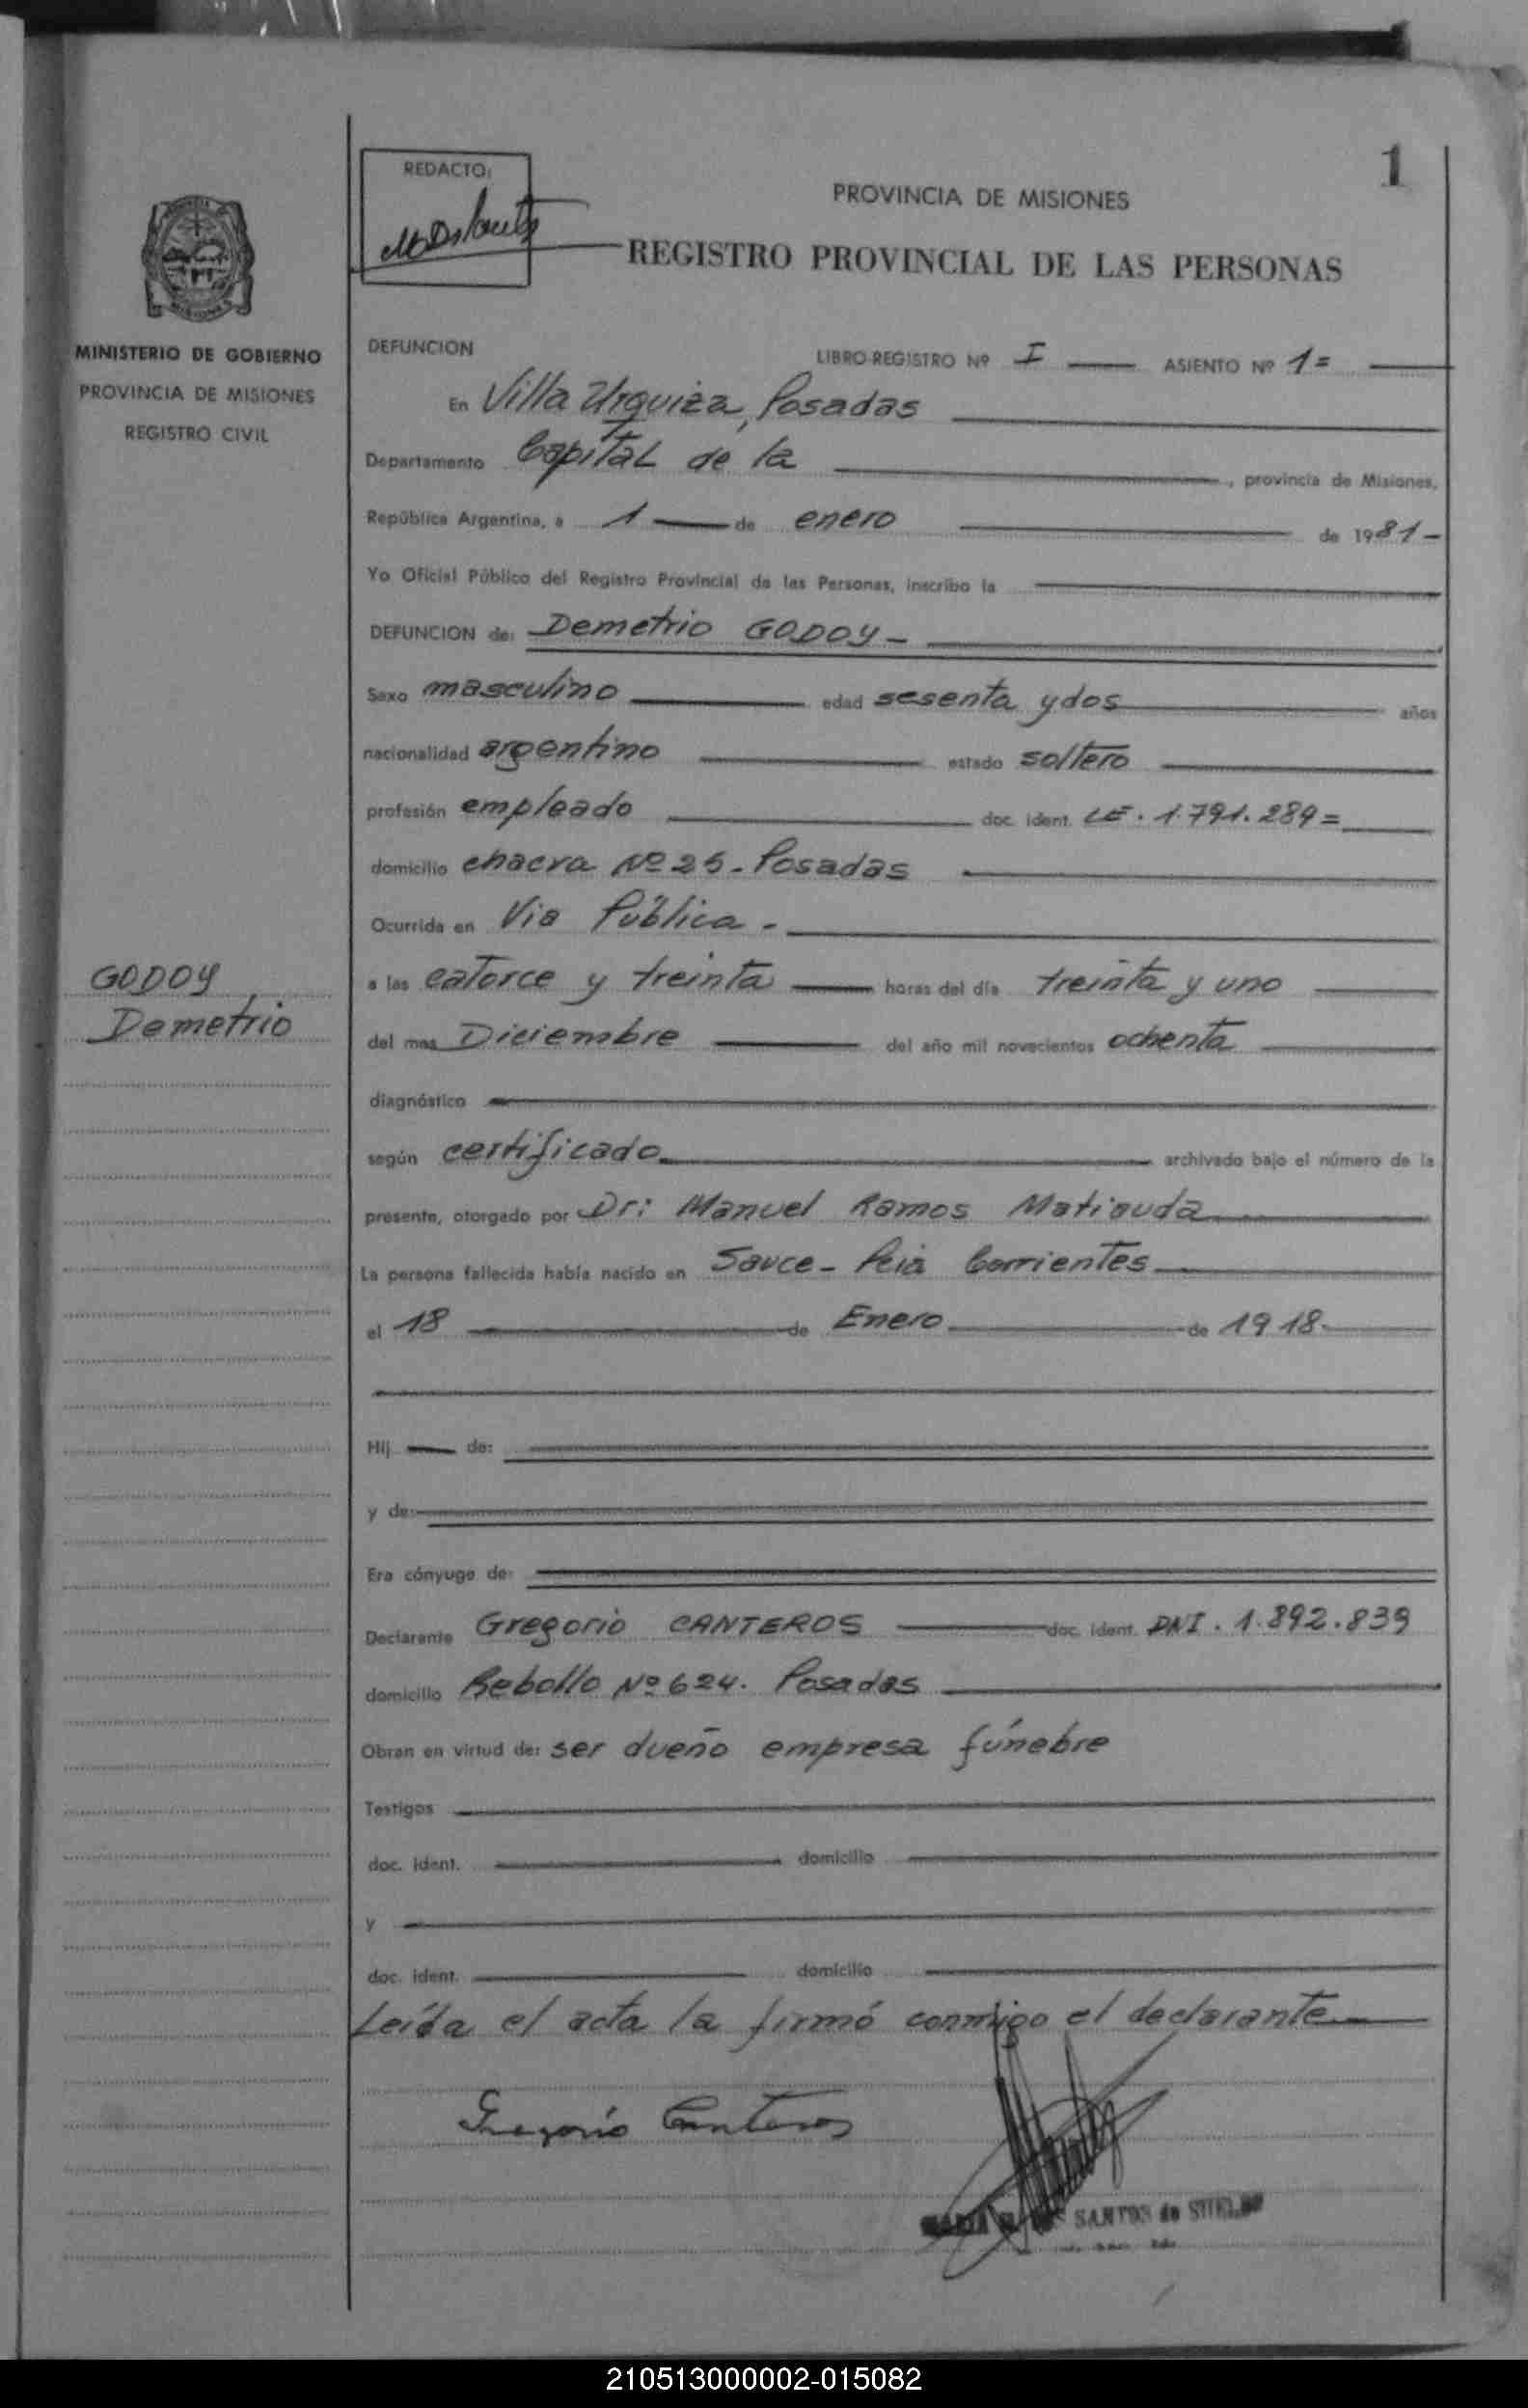 1
REDACTO:
PROVINCIA DE MISIONES
REGISTRO PROVINCIAL DE LAS PERSONAS
MINISTERIO DE GOBIERNO
PROVINCIA DE MISIONES
REGISTRO CIVIL
DEFUNCION LIBRO-REGISTRO Nº I ASIENTO Nº 1=
En Villa Urquiza, Posadas
Departamento Capital de la , provincia de Misiones,
República Argentina, a 1 de enero de 1981-
Yo Oficial Público del Registro Provincial de las Personas, inscribo la
DEFUNCION de: Demetrio GODOY-
Sexo masculino edad sesenta y dos años
nacionalidad argentino estado soltero
profesión empleado doc. ident. LE. 1.791.289=
domicilio chacra Nº 25. Posadas
Ocurrida en Via Pública.
GODOY
Demetrio
a las catorce y treinta horas del día treinta y uno
del mes Diciembre del año mil novecientos ochenta
diagnóstico
según certificado archivado bajo el número de la
presente, otorgado por Dr: Manuel Ramos Matiauda
La persona fallecida había nacido en Sauce- Pcia Corrientes
el 18 de Enero de 1918.
Hij de:
y de:
Era cónyuge de:
Declarante Gregorio CANTEROS doc. ident. DNI. 1.892.839
domicilio Rebollo Nº 624. Posadas
Obran en virtud de: ser dueño empresa fúnebre
Testigos
doc. ident. domicilio
y
doc. ident. domicilio
Leída el acta la firmó conmigo el declarante
Gregorio Canteros
SANTOS de
210513000002-015082